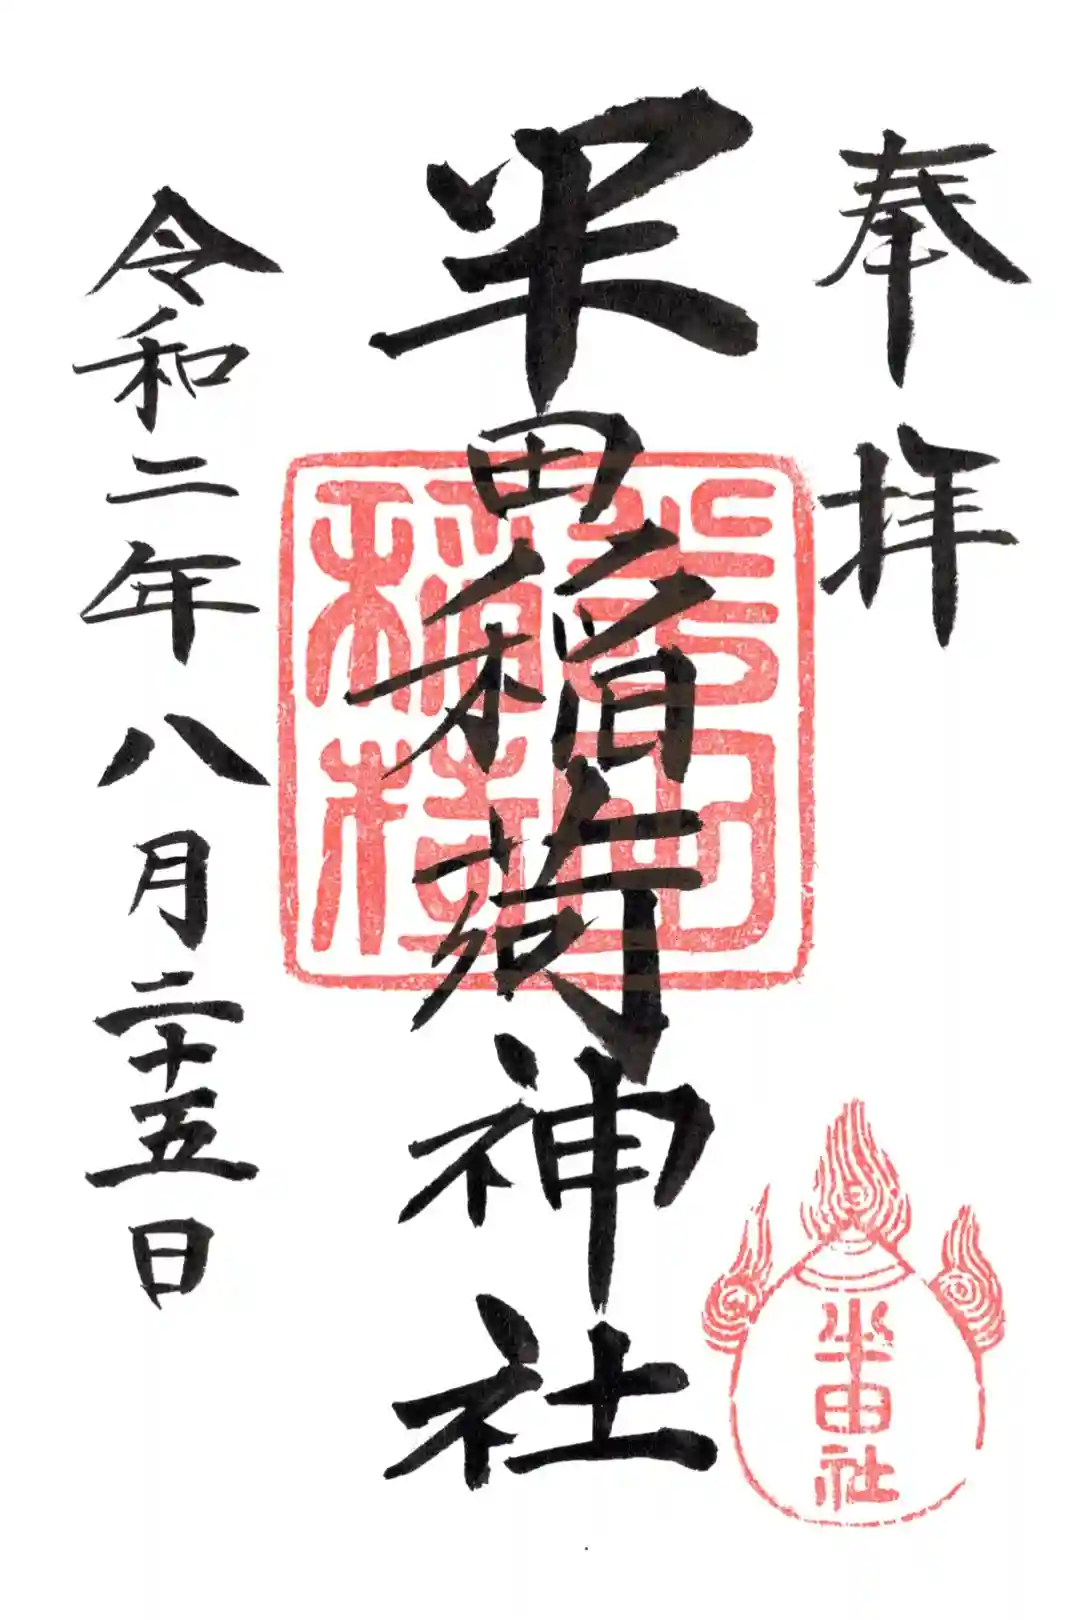 奉拝
半田稲荷神社
半田稲荷
半田社
令和二年八月二十五日